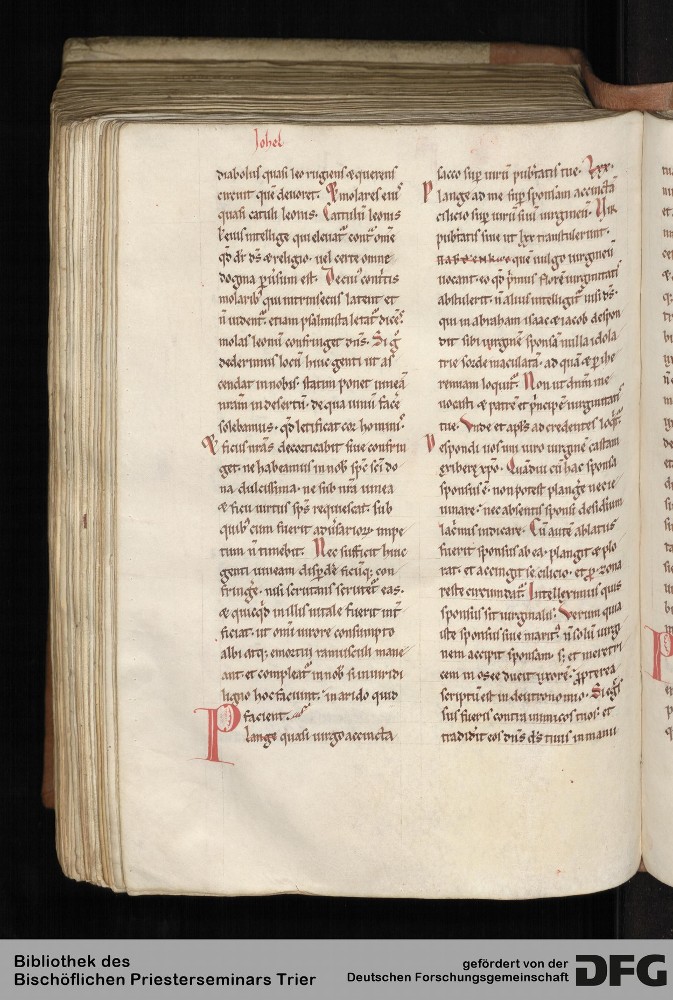 Johel
diabolus quasi leo rugiens & querens
circuit quē deuoret. & molares eiꝰ
quasi catuli leonis. Catulū leonis
l' eius intellige qui eleuat᷑ cont᷑ om̄e
qd̄ dr̄ ds̄ & religio. uel certe omne
dogma ꝑuersum est.
molarib; qui intrinsecus latent et
n̄ uident᷑. etiam psalmista letat᷑ dicēs.
molas leonū confringet dn̄s. Si g̊
dederimus locū huic genti ut as
cendat in nobis. statim ponet uineā
nr̄am in desertū. de qua uinū facere
solebamus. qd̄ letificat cor hominis.
& ficus nr̄as decorticabit siue confrin
get. ne habeamus in nob̄ sp̄c sc̄i do
na dulcissima. ne sub nr̄a uinea
& ficu uirtus sp̄s requiescat. sub
quib; cum fuerit aduersarioꝝ impe
tum n̄ timebit. Nec sufficit huic
genti uineam disꝑdere ficūq; con
fringere. nisi
& quicqd̄ in illis uitale fuerit int᷑
ficiat. ut om̄i uirore consumpto
albi atq; emortui ramusculi mane
ant et compleat᷑ in nob̄. si in uiridi
ligno hoc faciunt. in arido quid
facient.
Plange quasi uirgo accincta
sacco sup uirū pubertatis tue. Lxx.
Plange ad me sup sponsam accinctā
cilicio sup uirū suū uirgineū.
pubertatis sue ut lxx transtulerunt.
quē uulgo uirgineū
uocant. eo qd̄ primus florē uirginitatis
abstulerit. n̄ alius intelligit᷑ nisi ds̄.
qui in abraham isaac & iacob despon
dit sibi uirginē sponsā nulla idola
trie sorde maculatā. ad quā & ꝑ ihe
remiam loquit᷑. Non ut dnm̄ me
uocasti & patrē et principē uirginitatis
tue. Vnde et apl̄s ad credentes loqt᷑.
Despondi uos uni uiro uirginē castam
exibere xp̄o. Quādiu cū hac sponsa
sponsus ē. non potest plangere nec ie
iunare. nec absentis sponsi desideriū
lacrimis indicare. Cū autē ablatus
fuerit sponsus ab ea. plangit & plo
rat. et accingit se cilicio. et ꝑ zona
reste circundat᷑. Intelleximus quis
sponsus sit uirginalis. Verum quia
iste sponsus siue maritꝰ. n̄ solū uirgi
nem accipit sponsam. s; et meretri
cem in osee ducit uxorē. ꝓpterea
scriptū est in deutronomio. Si egres
sus fueris contra inimicos tuos. et
tradidit eos dn̄s ds̄ tuus in manu
Bibliothek des
Bischöflichen Priesterseminars Trier
gefördert von der
Deutschen Forschungsgemeinschaft
DFG